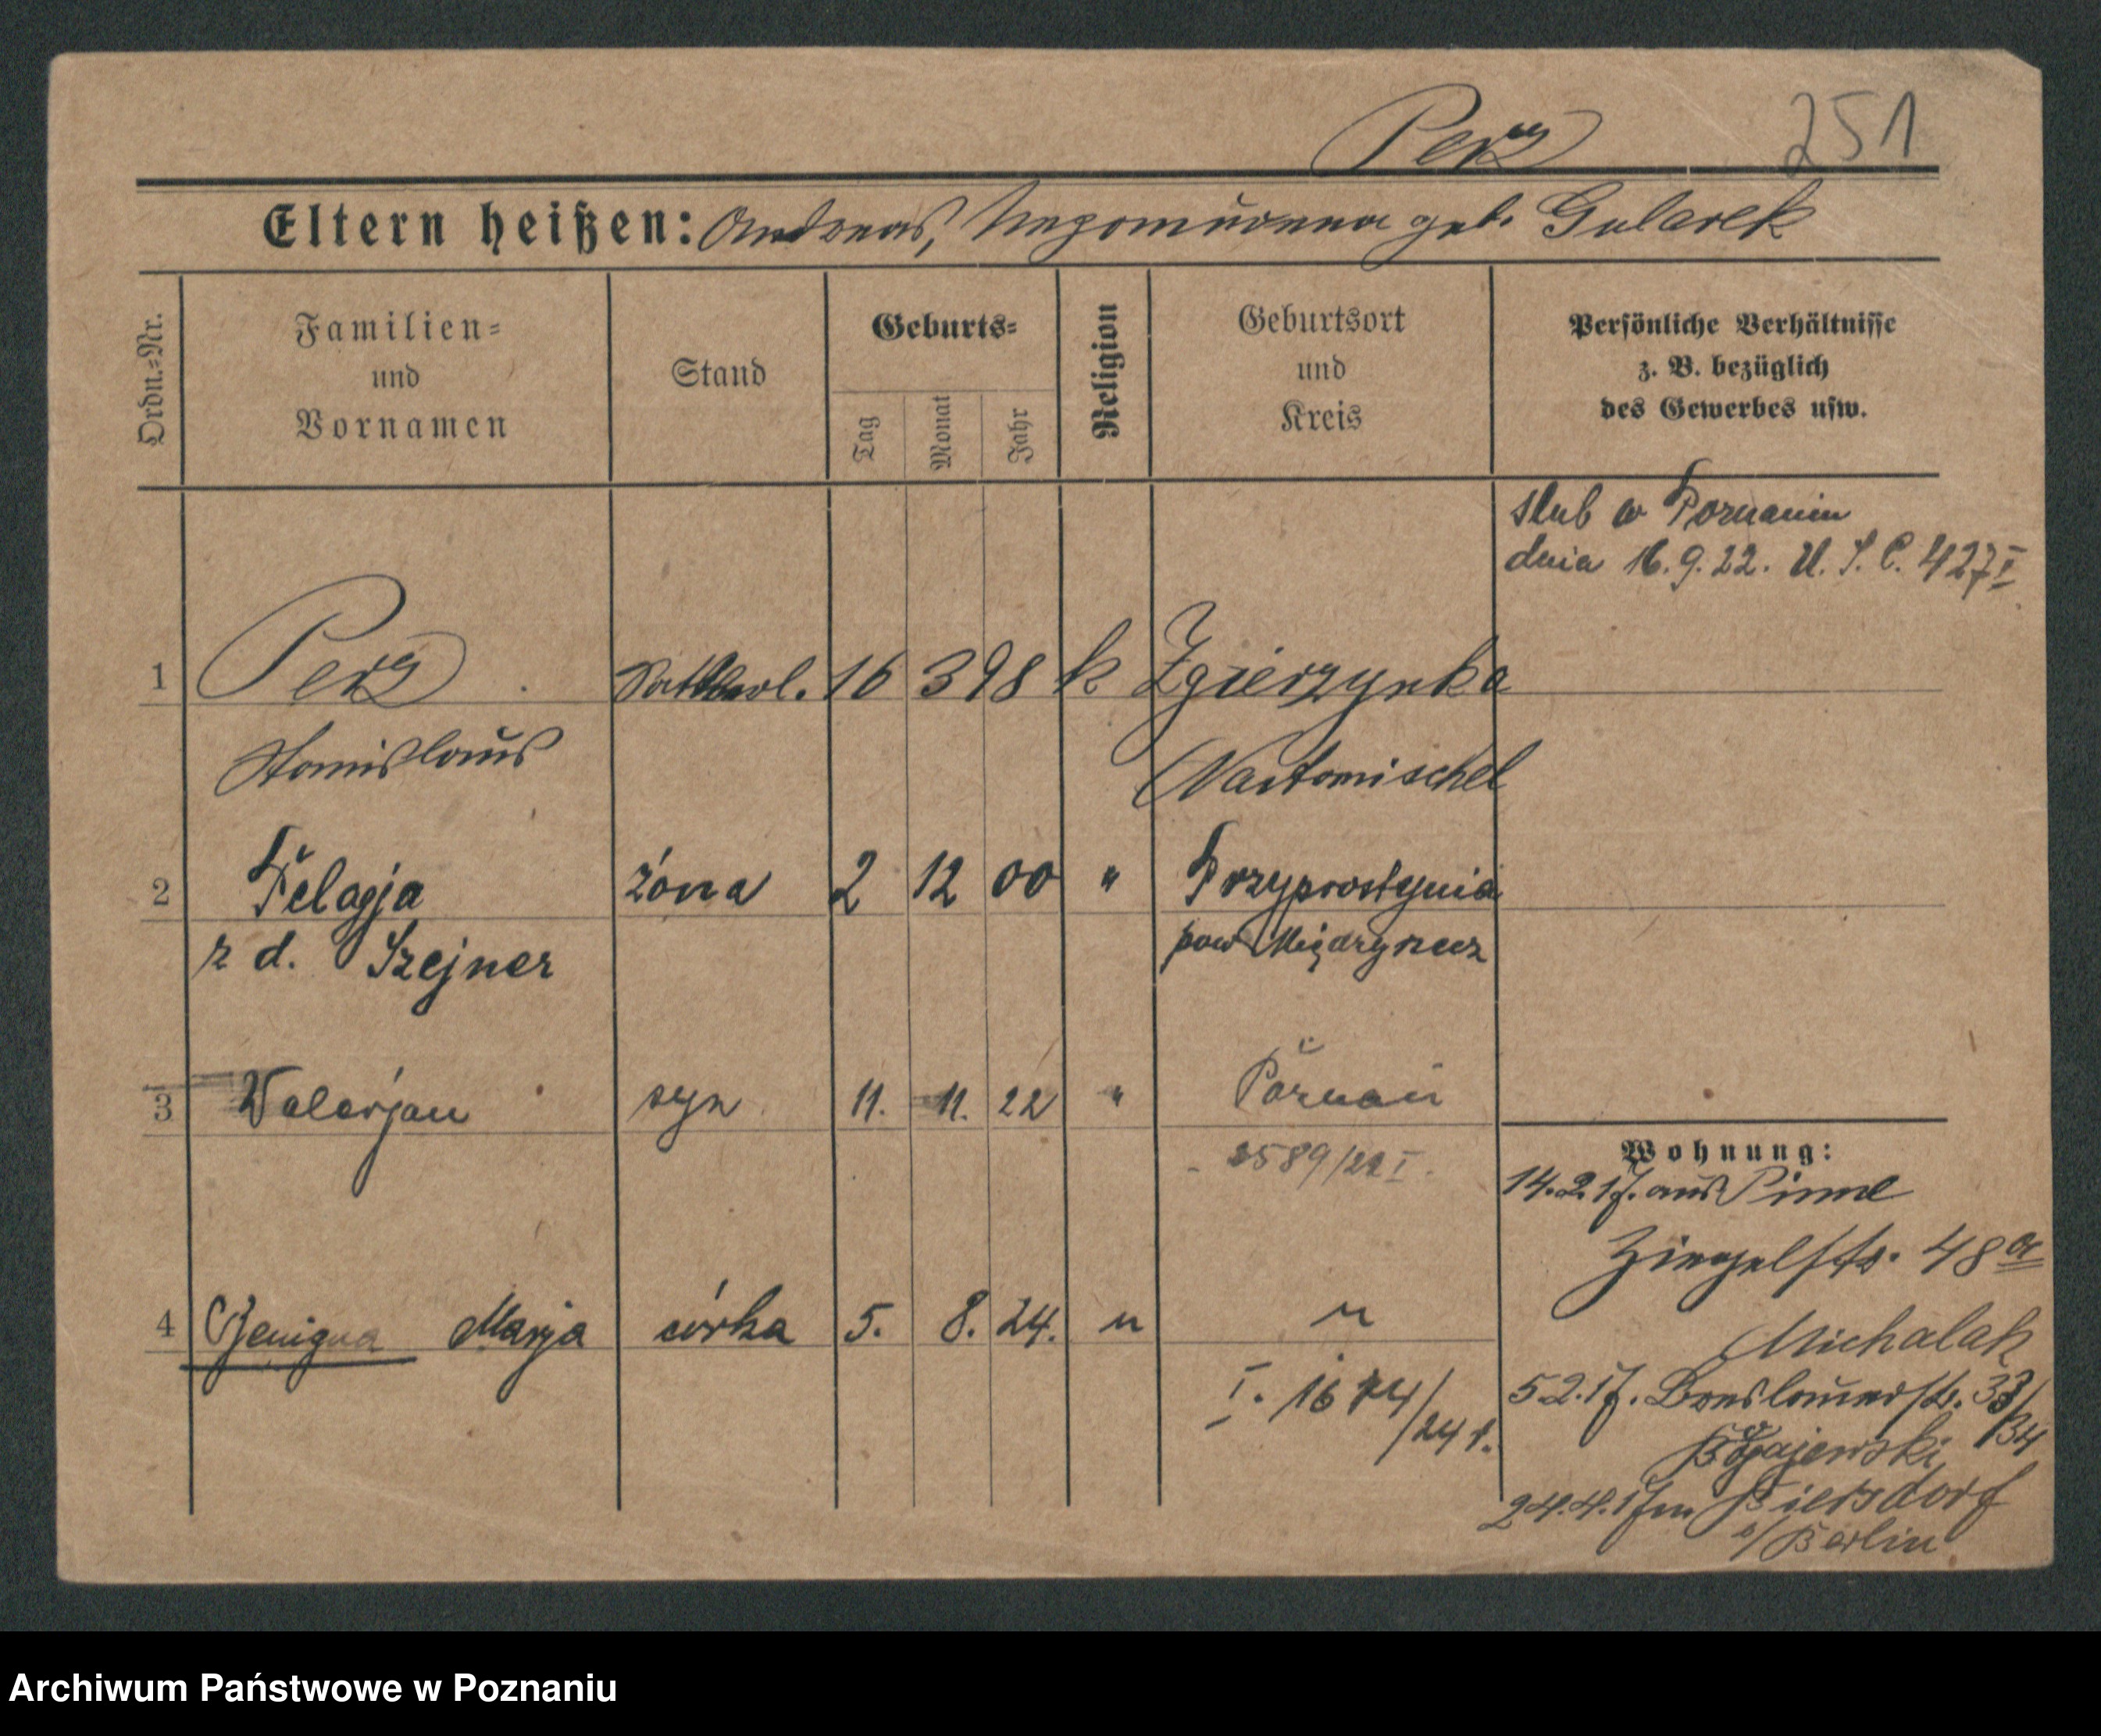 Perz 251
Eltern heißen: Andreas, Nepomucena geb. Gularek
Ordn.-Nr.
Familien-
und
Vornamen
Stand
Geburts-
Tag
Monat
Jahr
Religion
Geburtsort
und
Kreis
Persönliche Verhältnisse
z. B. bezüglich
des Gewerbes usw.
ślub w Poznaniu
dnia 16.9.22. U. S. C. 427 I
1 Perz 16 3 98 k Zgierzynka
Stanislaus
2 Pelagja żona 2 12 00 " Przyprostynia
z d. Szejner pow Międzyrzecz
3 Walerjan syn 11. 11. 22 " Poznań
2589/22 I.
Wohnung:
14.2.17. aus Pinne
Ziegelstr. 48 a
4 Benigna Marja córka 5. 8. 24. " "
Michalak
I. 1674/24 r.
5 2.17. Breslauerstr. 33/34
24.4.17 n Biersdorf
b/Berlin
Archiwum Państwowe w Poznaniu